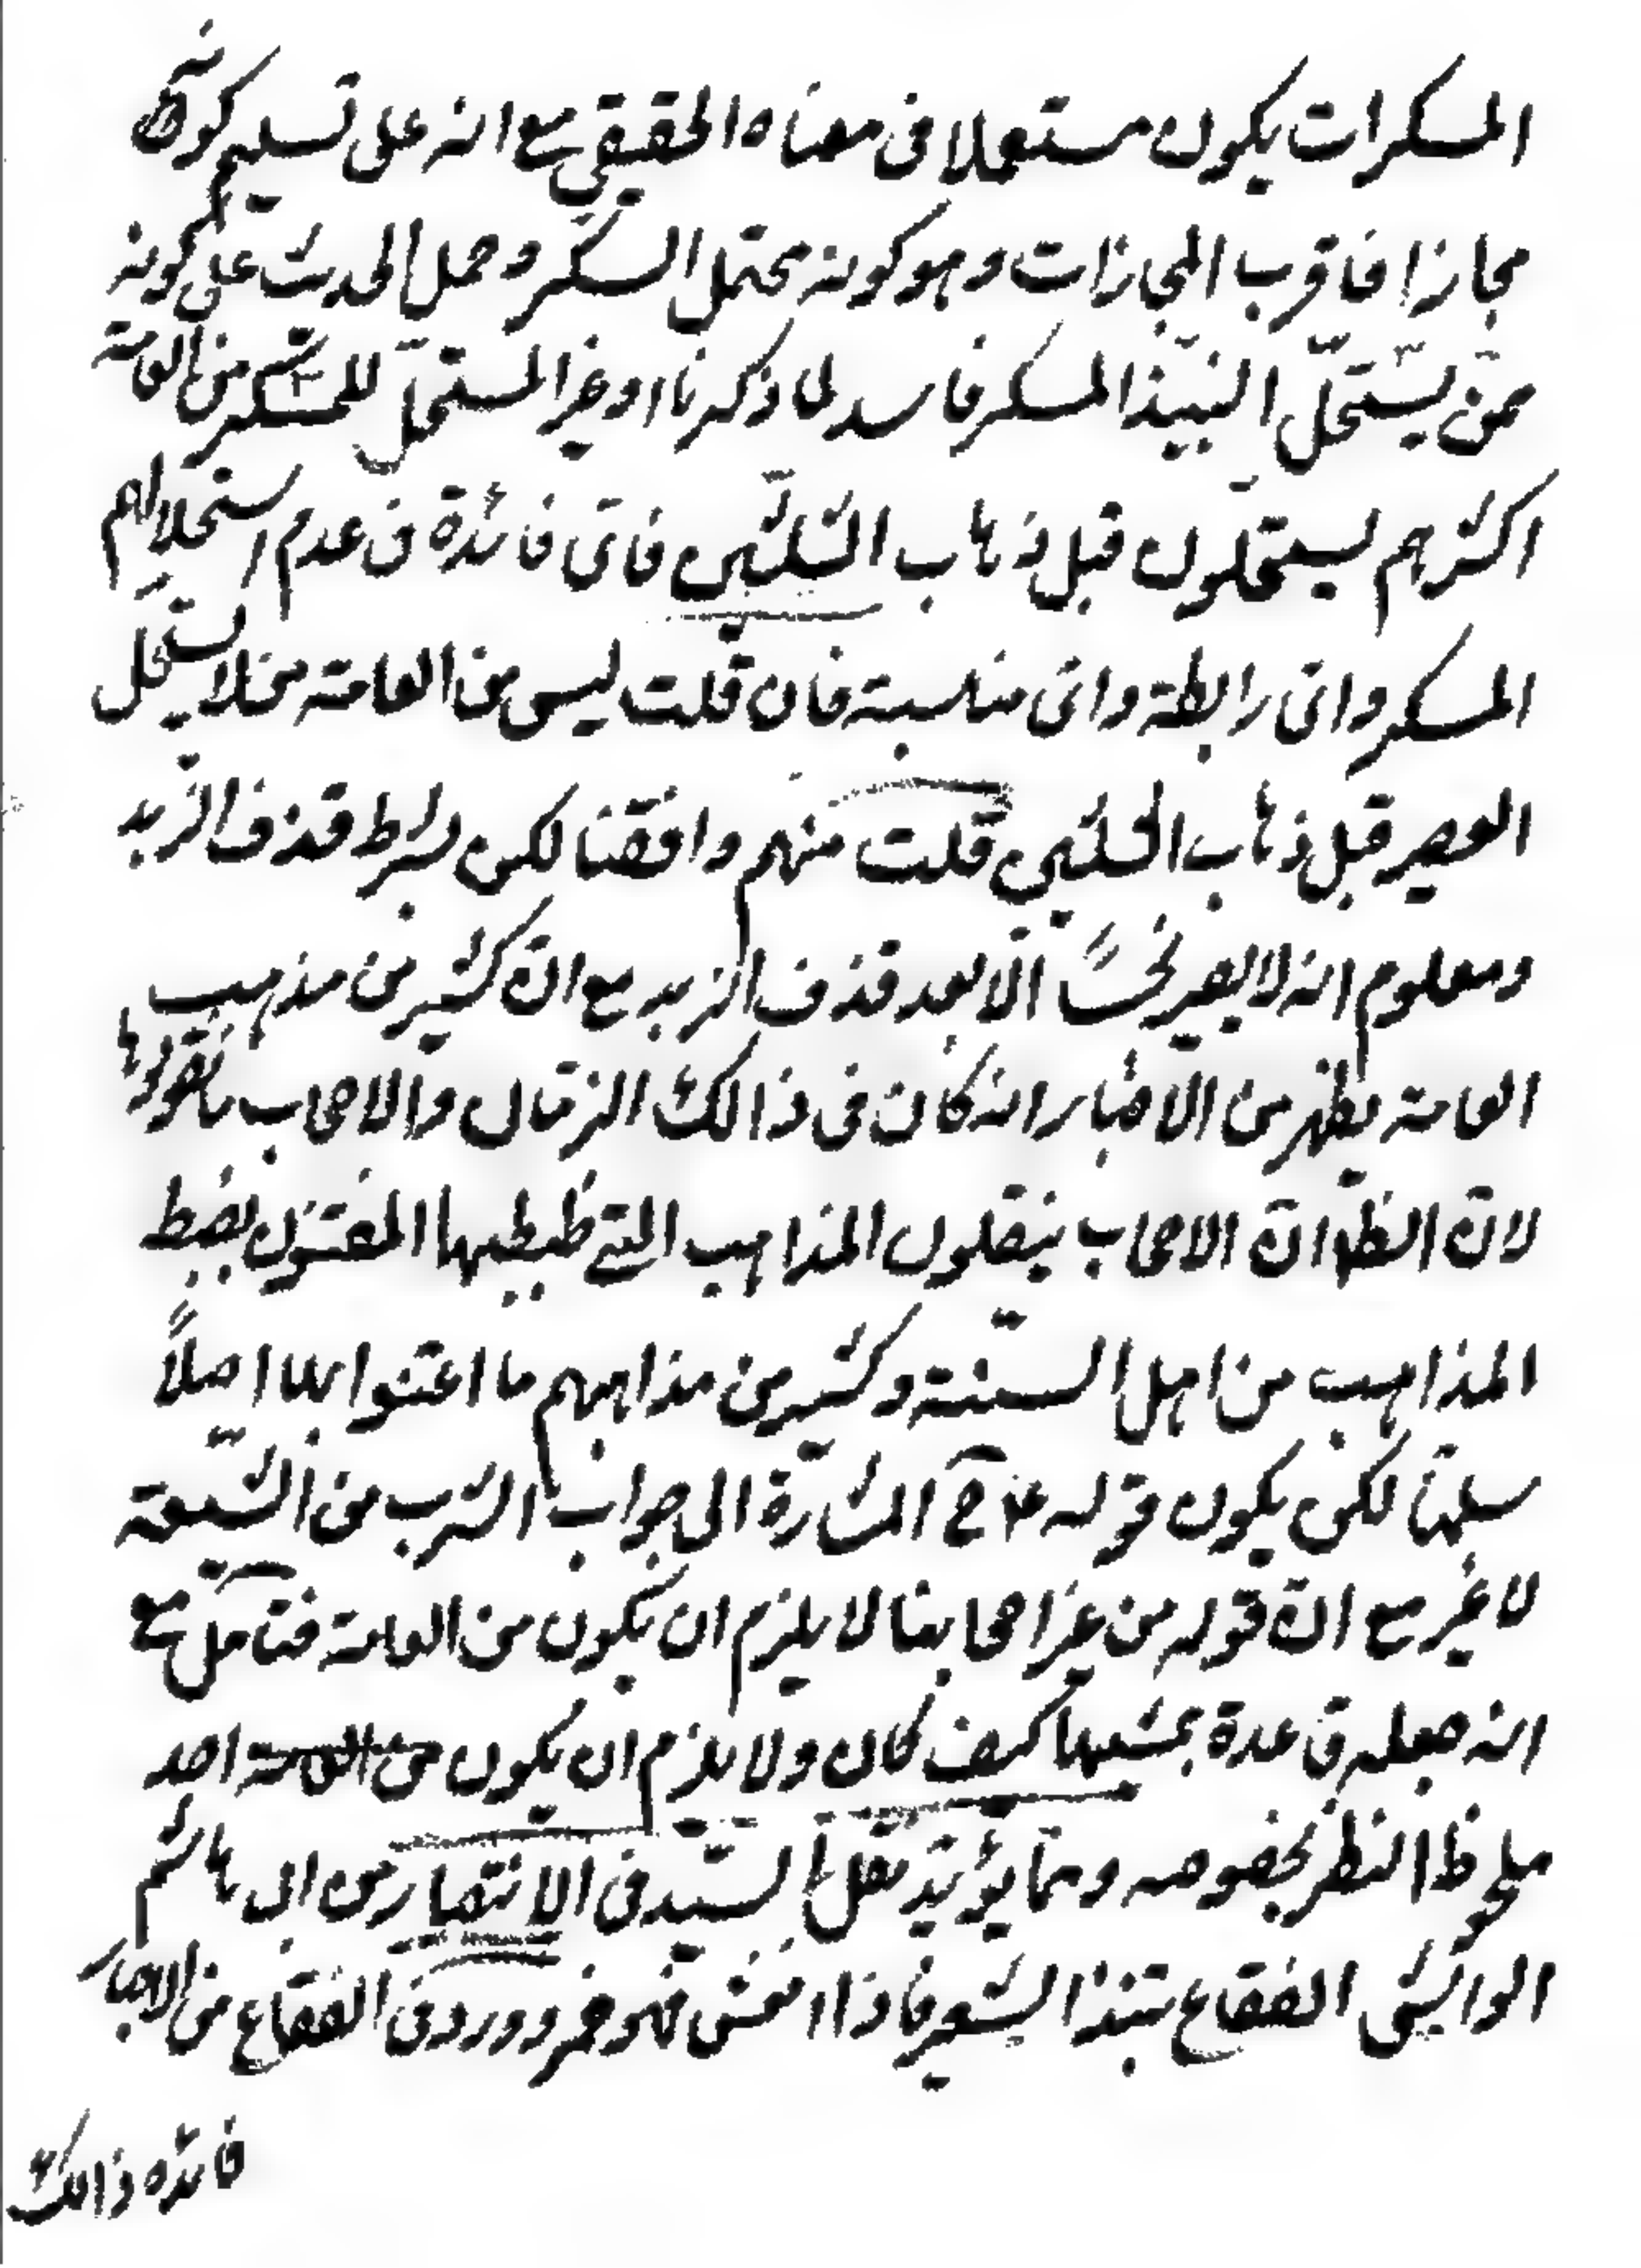 المسكرات يكون مستعملا فى معناه الحقيقي مع انه على تسليم كونه
مجازا فاقرب المجازات وهو كونه محتمل السكر وحمل الحديث على كونه
ممن يستحلّ النبيذ المسكر فاسد لما ذكرنا او غير المستحلّ للمسكر من العامة
اكثرهم يستحلون قبل ذهاب الثلثين فاىّ فائدة فى عدم استحلالهم
المسكر واىّ رابطة واىّ مناسبة فان قلت ليس من العامة من لا يستحل
العصير قبل ذهاب الثلثين قلت منهم وافقنا لكن بشرط قذف الزبد
ومعلوم انه لا يصير نجسًا الّا بعد قذف الزبد مع انّ كثير من مذهب
العامة يظهر من الاخبار انه كان فى ذالك الزمان والاصحاب ما نقولوها
لانّ الظّ انّ الاصحاب ينقلون المذاهب التي ظبطيها المعتنون بضبط
المذاهب من اهل السنة وكثير من مذاهبهم ما اعتنوا بها اصلاً
سلمنا لكن يكون قوله ع ح اشارة الى جواب الشرب من الشيعة
لا غير مع انّ قوله من غير اصحابنا لا يلزم ان يكون من العامة فتامّل مع
انه جعله قاعدة بمشيها كيف كان ولا يلزم ان يكون من العامة احد
ملحوظ النظر بخصوصه وممّا يؤيّد نقل السيّد فى الانتصار من ابى هاشم
الواسطى الفقاع نبيذ الشعير فاذا نش فهو خمر وورد فى الفقاع من الاخبار
فائده ذالك